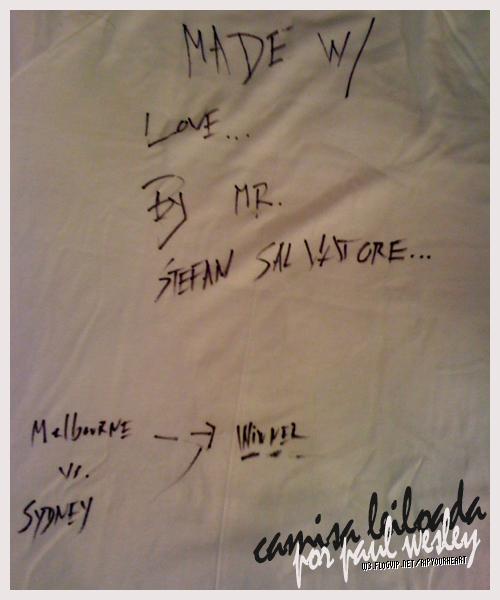 MADE W/
LOVE...
By MR.
STEFAN SALVATORE...
MelbouRNE → WINNER
VS.
SYDNEY
camisa leiloada
por paul wesley
W3.FLOGVIP.NET/RIPYOURHEART